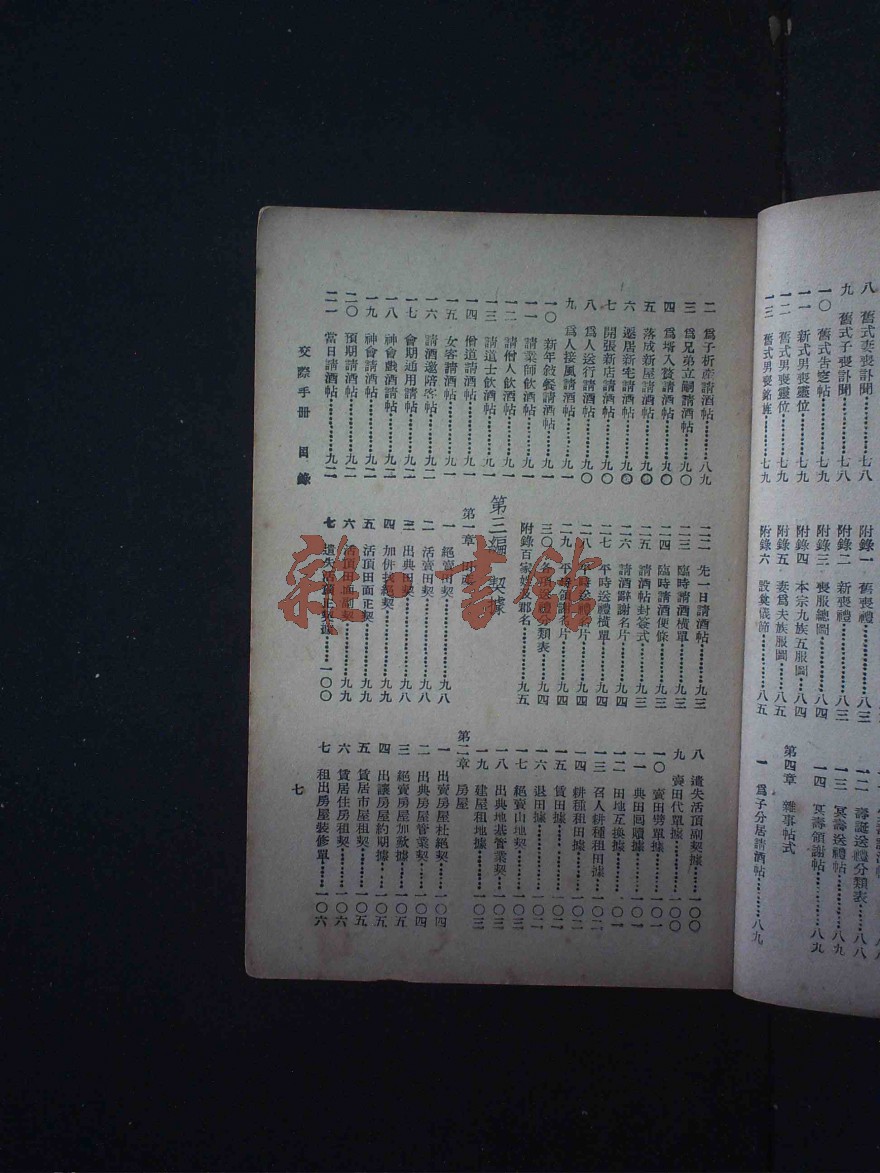 八 舊式妻喪訃聞………七八
九 舊式子喪訃聞………七八
一〇 舊式告窆帖………七九
一一 新式男喪靈位………七九
一二 舊式男喪靈位………七九
一三 舊式男喪銘旌………七九
附錄一 舊喪禮………八三
附錄二 新喪禮………八三
附錄三 喪服總圖………八四
附錄四 本宗九族五服圖………八四
附錄五 妻爲夫族服圖………八五
附錄六 設奠儀節………八五
一二 壽誕送禮分類表………八八
一三 冥壽送禮帖………八九
一四 冥壽領謝帖………八九
第四章 雜事帖式
一 爲子分居請酒帖………八九
二 爲子析產請酒帖………八九
三 爲兄弟立嗣請酒帖………九〇
四 爲壻入贅請酒帖………九〇
五 落成新屋請酒帖………九〇
六 遷居新宅請酒帖………九〇
七 開張新店請酒帖………九〇
八 爲人送行請酒帖………九一
九 爲人接風請酒帖………九一
一〇 新年敍餐請酒帖………九一
一一 請業師飲酒帖………九一
一二 請僧人飲酒帖………九一
一三 請道士飲酒帖………九一
一四 僧道請酒帖………九一
一五 女客請酒帖………九一
一六 請酒邀陪客帖………九二
一七 會期通用請帖………九二
一八 神會戲酒請帖………九二
一九 神會請酒帖………九二
二〇 預期請酒帖………九二
二一 當日請酒帖………九二
二二 先一日請酒帖………九三
二三 臨時請酒橫單………九三
二四 臨時請酒便條………九三
二五 請酒帖封簽式………九三
二六 請酒辭謝名片………九四
二七 平時送禮橫單………九四
二八 平時送禮名片………九四
二九 平時領謝名片………九四
三〇 各項送禮分類表………九四
附錄百家姓及郡名………九五
第三編 契據
第一章 田
一 絕賣田契………九八
二 活賣田契………九八
三 出典田契………九八
四 加併找絕契………九九
五 活頂田面正契………九九
六 活頂田面副契………九九
七 遺失活頂正契據………一〇〇
八 遺失活頂副契據………一〇〇
九 賣田代單據………一〇〇
一〇 賣田劈單據………一〇一
一一 典田囘贖據………一〇一
一二 田地互換據………一〇一
一三 召人耕種租田據………一〇二
一四 耕種租田據………一〇二
一五 賃田據………一〇二
一六 退田據………一〇二
一七 絕賣山地契………一〇三
一八 出典地基管業契………一〇三
一九 建屋租地據………一〇三
第二章 房屋
一 出賣房屋杜絕契………一〇四
二 出典房屋管業契………一〇四
三 絕賣房屋加歎據………一〇五
四 出讓房屋約期據………一〇五
五 賃居市屋租契………一〇五
六 賃居住房租契………一〇六
七 租出房屋裝修單………一〇六
交際手冊 目錄
七
雜書館